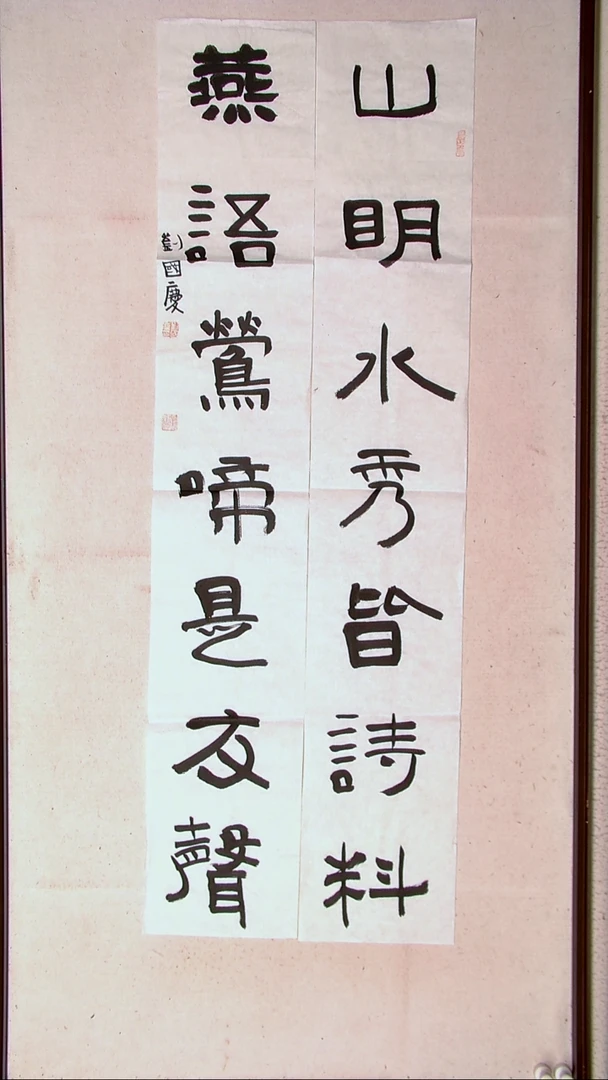 山明水秀皆詩料
燕語鶯啼是友聲
劉國慶